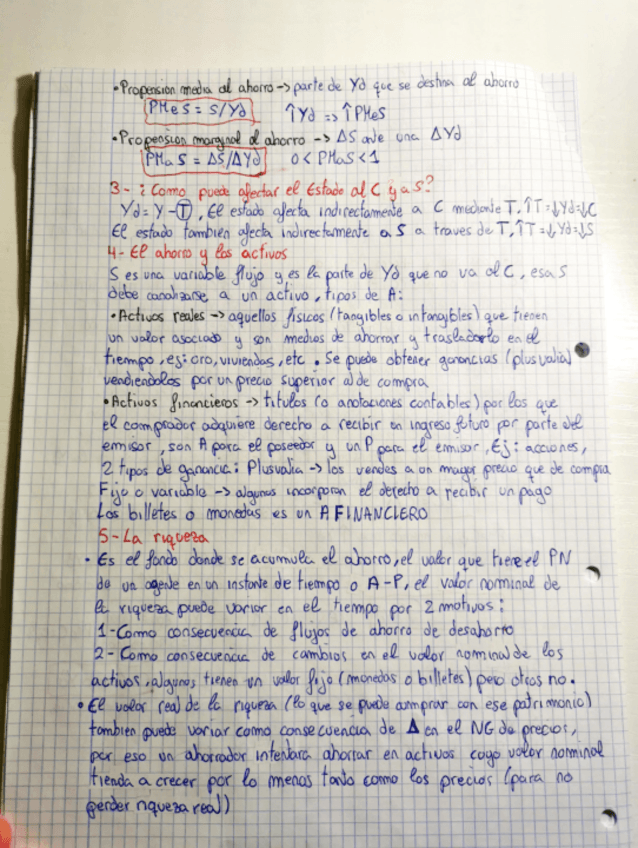 • Propension media al ahorro -> parte de Yd que se destina al ahorro
PMe S = S/Yd ↑Yd => ↑PMeS
• Propension marginal al ahorro -> ΔS ante una ΔYd
PMa S = ΔS/ΔYd 0 < PMaS < 1
3- ¿Como puede afectar el Estado al C y a S?
Yd = Y - T, El estado afecta indirectamente a C mediante T, ↑T=↓Yd=↓C
El estado tambien afecta indirectamente a S a traves de T, ↑T=↓Yd=↓S
4- El ahorro y los activos
S es una variable flujo y es la parte de Yd que no va al C, esa S
debe canalizarse a un activo, tipos de A:
• Activos reales -> aquellos fisicos (tangibles o intangibles) que tienen
un valor asociado y son medios de ahorrar y trasladarlo en el
tiempo, ej: oro, viviendas, etc. Se puede obtener ganancias (plusvalia)
vendiendolos por un precio superior al de compra
• Activos financieros -> titulos (o anotaciones contables) por los que
el comprador adquiere derecho a recibir un ingreso futuro por parte del
emisor, son A para el poseedor y un P para el emisor, Ej: acciones,
2 tipos de ganancia: Plusvalia -> los vendes a un mayor precio que de compra
Fijo o variable -> algunos incorporan el derecho a recibir un pago
Los billetes o monedas es un A FINANCIERO
5- La riqueza
• Es el fondo donde se acumula el ahorro, el valor que tiene el PN
de un agente en un instante de tiempo o A-P, el valor nominal de
la riqueza puede variar en el tiempo por 2 motivos:
1- Como consecuencia de flujos de ahorro de desahorro
2- Como consecuencia de cambios en el valor nominal de los
activos, algunos tienen un valor fijo (monedas o billetes) pero otros no.
• El valor real de la riqueza (lo que se puede comprar con ese patrimonio)
tambien puede variar como consecuencia de Δ en el NG de precios,
por eso un ahorrador intentara ahorrar en activos cuyo valor nominal
tienda a crecer por lo menos tanto como los precios (para no
perder riqueza real)